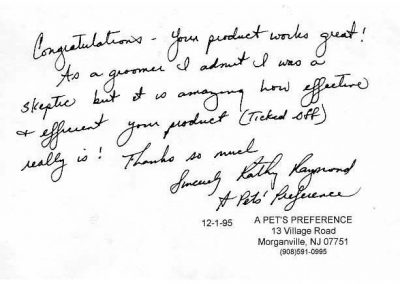 Congratulations - Your product works great!
As a groomer I admit I was a
skeptic but it is amazing how effective
& efficient your product (Ticked Off)
really is! Thanks so much
Sincerely Kathy Raymond
A Pets' Preference
12-1-95 A PET'S PREFERENCE
13 Village Road
Morganville, NJ 07751
(908)591-0995